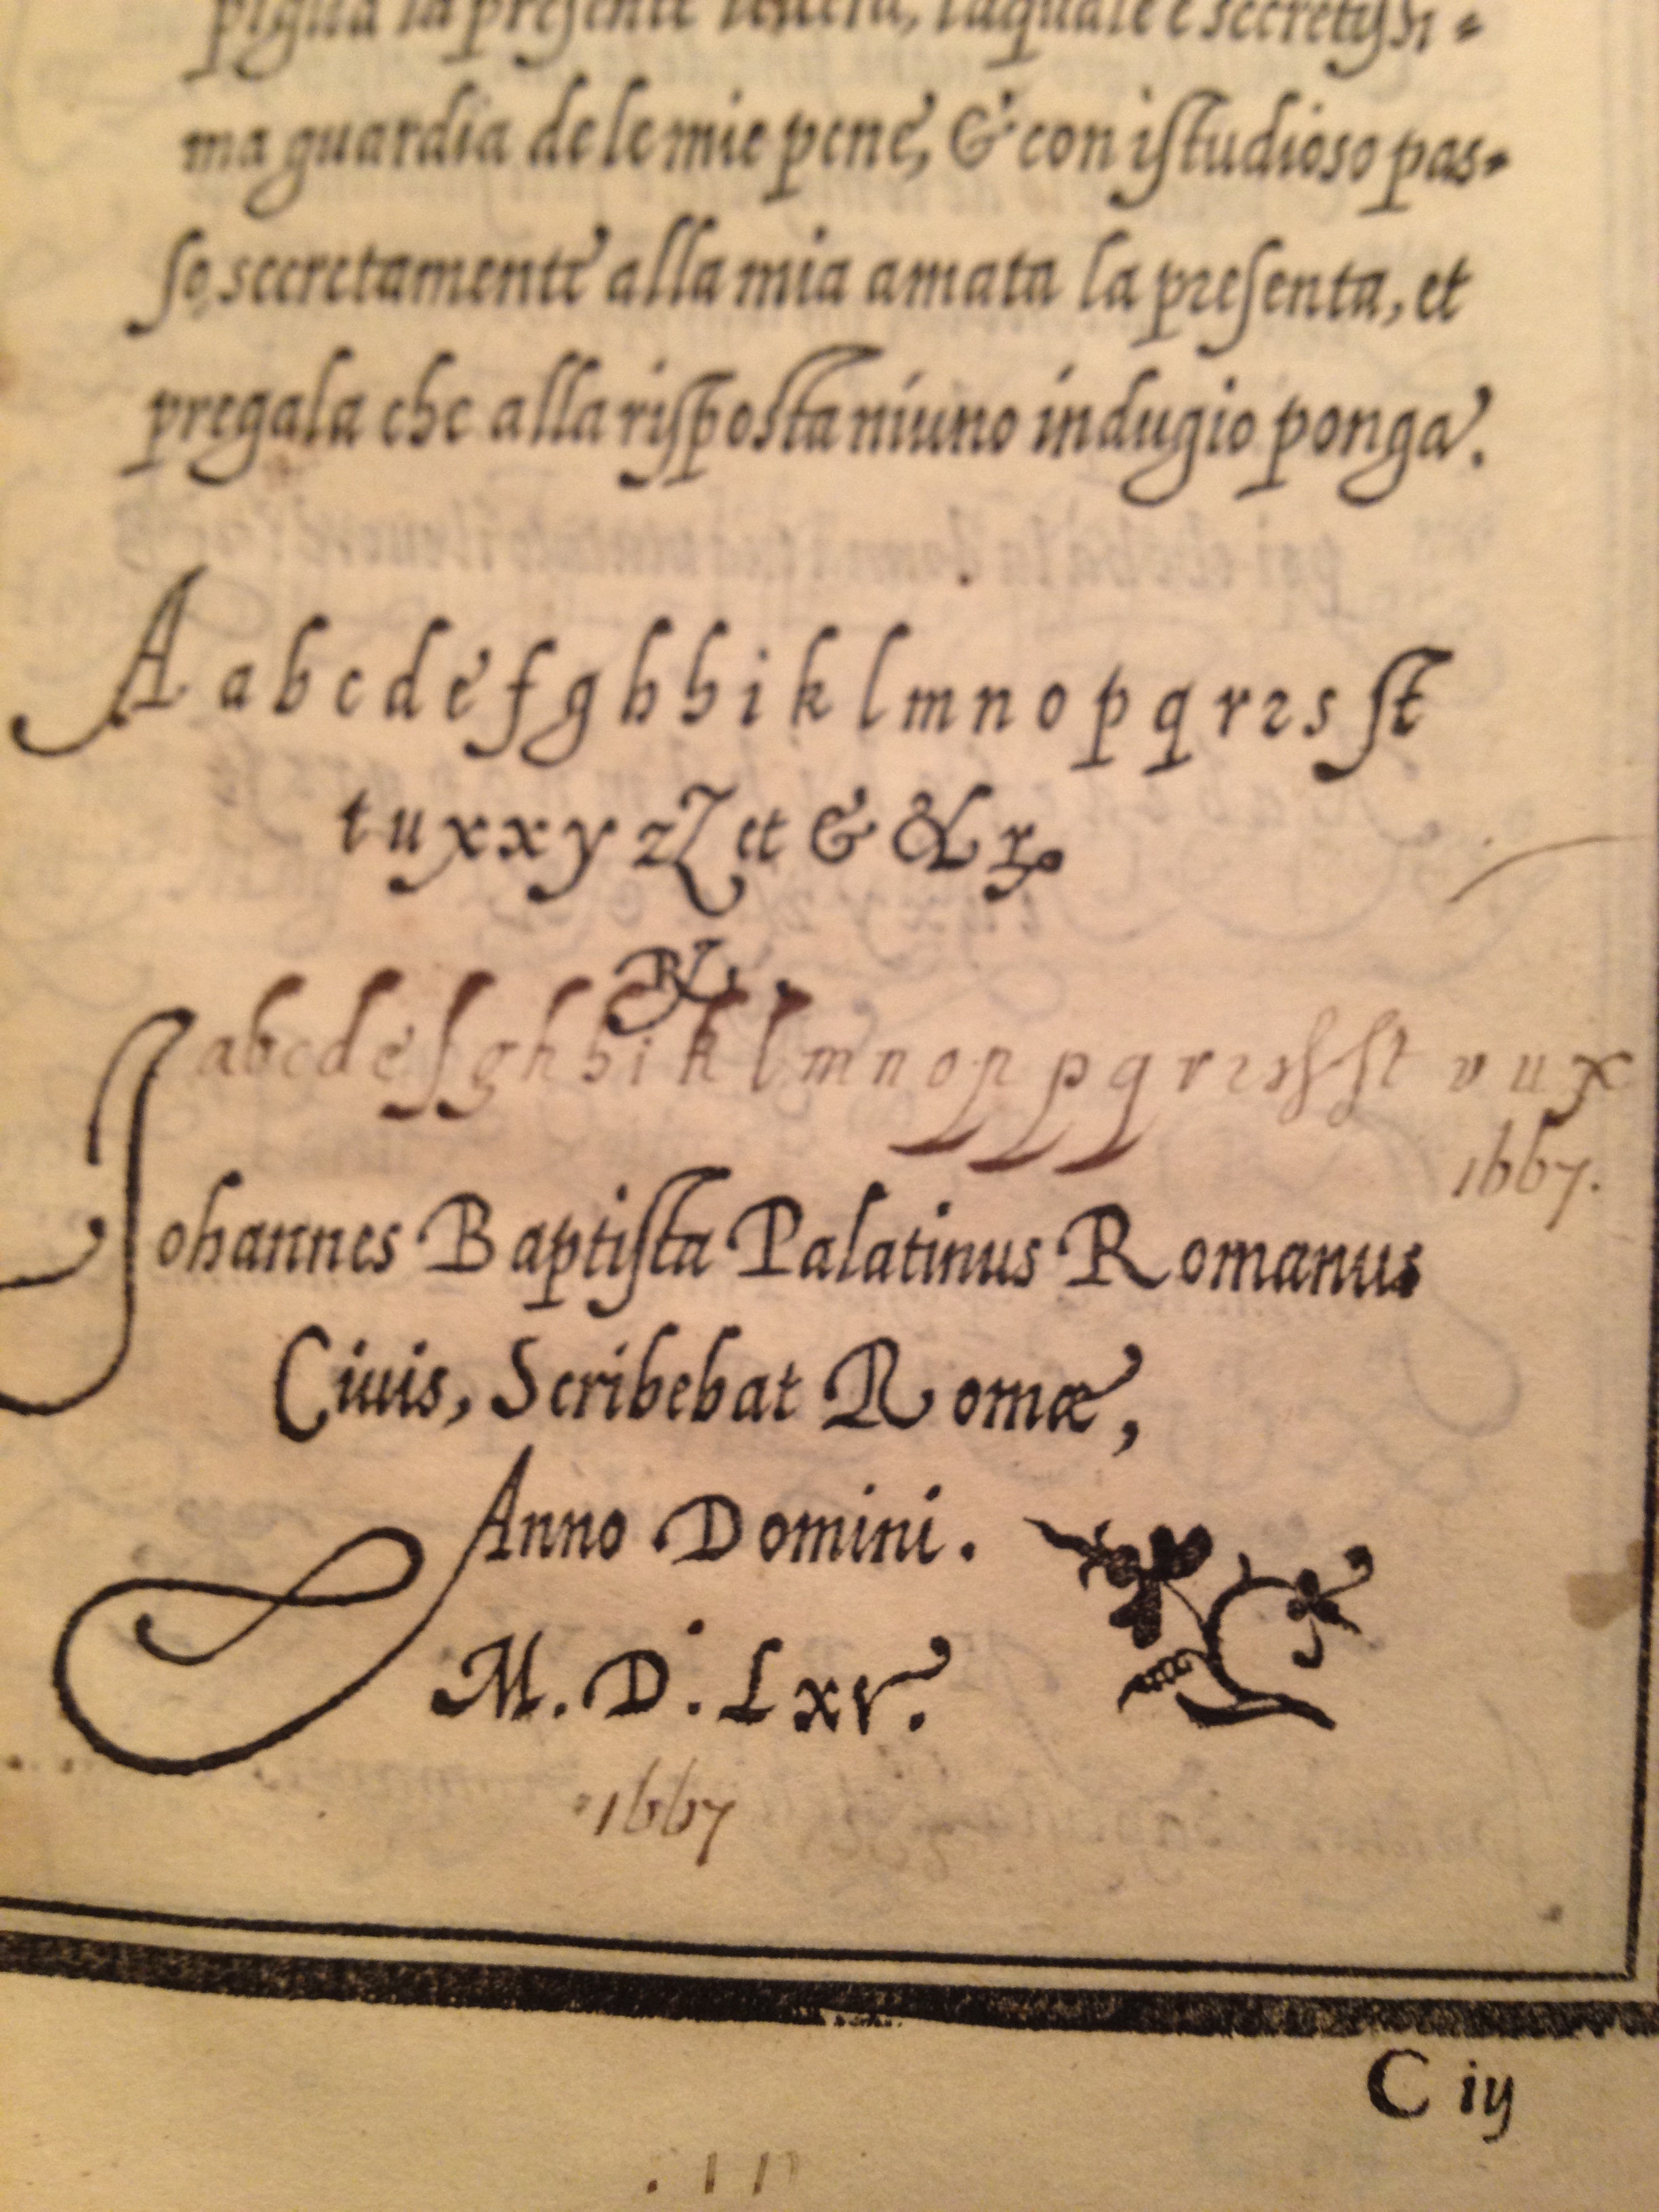 piglia la preſente lettera, laquale è secretiſſi-
ma guardia de le mie pene, & con iſtudioso pas-
ſo, secretamente alla mia amata la preſenta, et
pregala che alla riſpoſta niuno indugio ponga.
A a b c d e f g h h i k l m n o p q r ꝛ s ſt
t u x x y z Z et & &
a b c d e f g h h i k l m n o p p p q r ꝛ s ſ ſt v u x
1667.
Johannes Baptiſta Palatinus Romanus
Ciuis, Scribebat Romæ,
Anno Domini.
M. D. Lxv.
1667
C iij